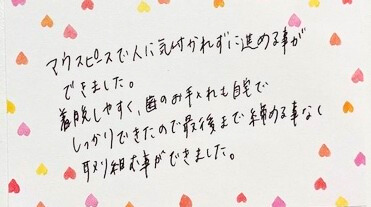 マウスピースで人に気付かれずに進める事が
できました。
着脱しやすく、歯のお手入れも自宅で
しっかりできたので最後まで締める事なく
取り組む事ができました。